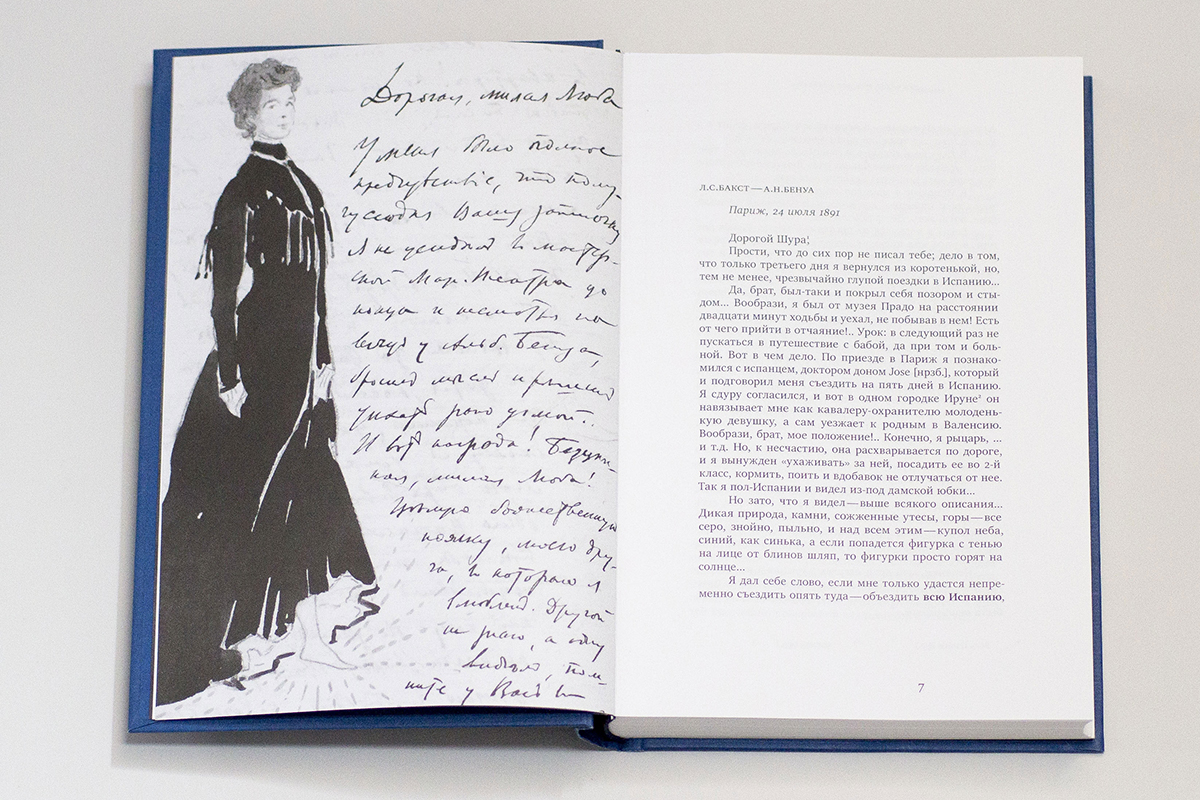 Дорогая, милая Люба
У меня было полное
предчувствіе, что полу-
Вашу записочку
Я не усидѣлъ въ мастер-
ской Мар. Театра до
конца и
вечеръ у Альб. Бенуа,
бросилъ
И вотъ награда! 
милая Люба!
божественную
ножку, моего дру-
га, въ которую я
влюбленъ. Другой
не знаю, а эту
видѣлъ, пом-
ните у
Л.С.БАКСТ — А.Н.БЕНУА
Париж, 24 июля 1891
Дорогой Шура¹,
Прости, что до сих пор не писал тебе; дело в том,
что только третьего дня я вернулся из коротенькой, но,
тем не менее, чрезвычайно глупой поездки в Испанию...
Да, брат, был-таки и покрыл себя позором и сты-
дом... Вообрази, я был от музея Прадо на расстоянии
двадцати минут ходьбы и уехал, не побывав в нем! Есть
от чего прийти в отчаяние!.. Урок: в следующий раз не
пускаться в путешествие с бабой, да при том и боль-
ной. Вот в чем дело. По приезде в Париж я познако-
мился с испанцем, доктором доном Jose [нрзб.], который
и подговорил меня съездить на пять дней в Испанию.
Я сдуру согласился, и вот в одном городке Ируне² он
навязывает мне как кавалеру-охранителю молодень-
кую девушку, а сам уезжает к родным в Валенсию.
Вообрази, брат, мое положение!.. Конечно, я рыцарь, ...
и т.д. Но, к несчастию, она расхварывается по дороге,
и я вынужден «ухаживать» за ней, посадить ее во 2-й
класс, кормить, поить и вдобавок не отлучаться от нее.
Так я пол-Испании и видел из-под дамской юбки...
Но зато, что я видел — выше всякого описания...
Дикая природа, камни, сожженные утесы, горы — все
серо, знойно, пыльно, и над всем этим — купол неба,
синий, как синька, а если попадется фигурка с тенью
на лице от блинов шляп, то фигурки просто горят на
солнце...
Я дал себе слово, если мне только удастся непре-
менно съездить опять туда — объездить всю Испанию,
7